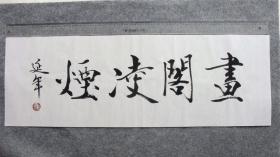 畫閣凌煙
延年